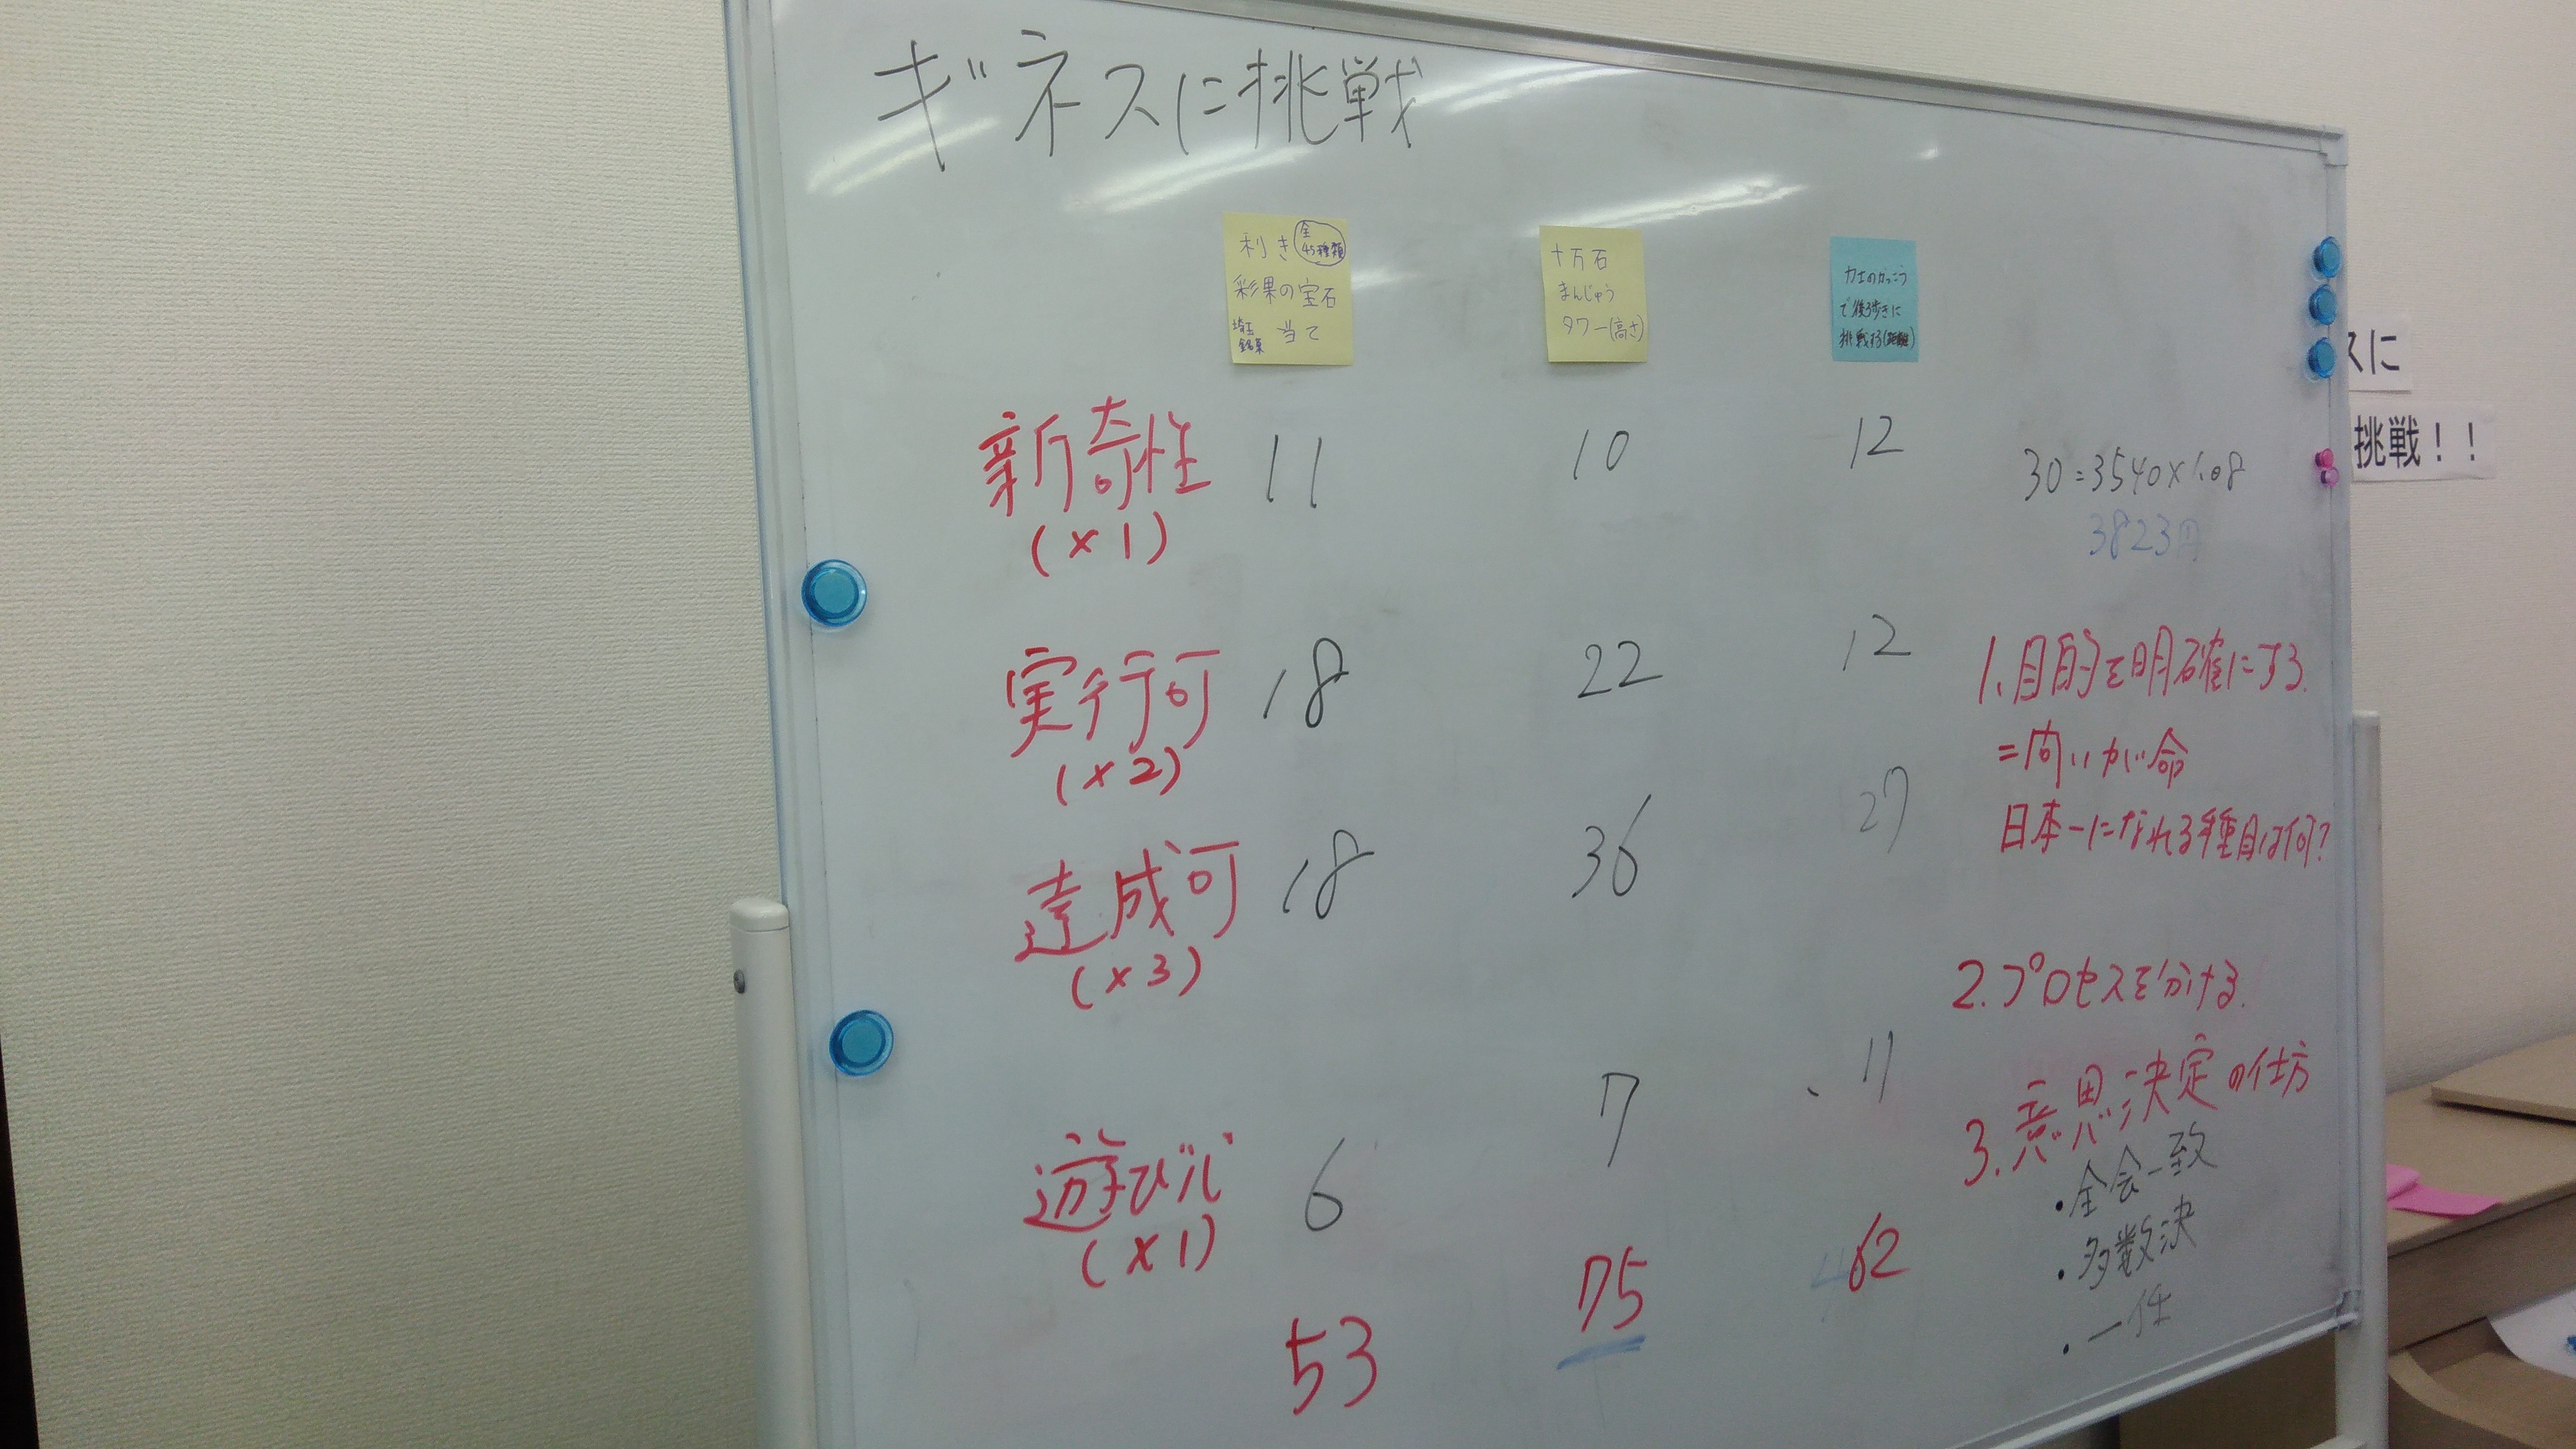 ギネスに挑戦
利き 全45種類
彩果の宝石
埼玉銘菓 当て
十万石
まんじゅう
タワー(高さ)
力士のかっこう
で後ろ歩きに
挑戦する(距離)
新奇性 11 10 12
(×1)
30=3540×1.08
3823円
実行可 18 22 12
(×2)
達成可 18 36 27
(×3)
遊び心 6 7 11
(×1)
53 75 62
1.目的を明確にする.
=問いが命
日本一になれる種目は何?
2.プロセスを分ける.
3.意思決定の仕方
・全会一致
・多数決
・一任
スに
挑戦!!